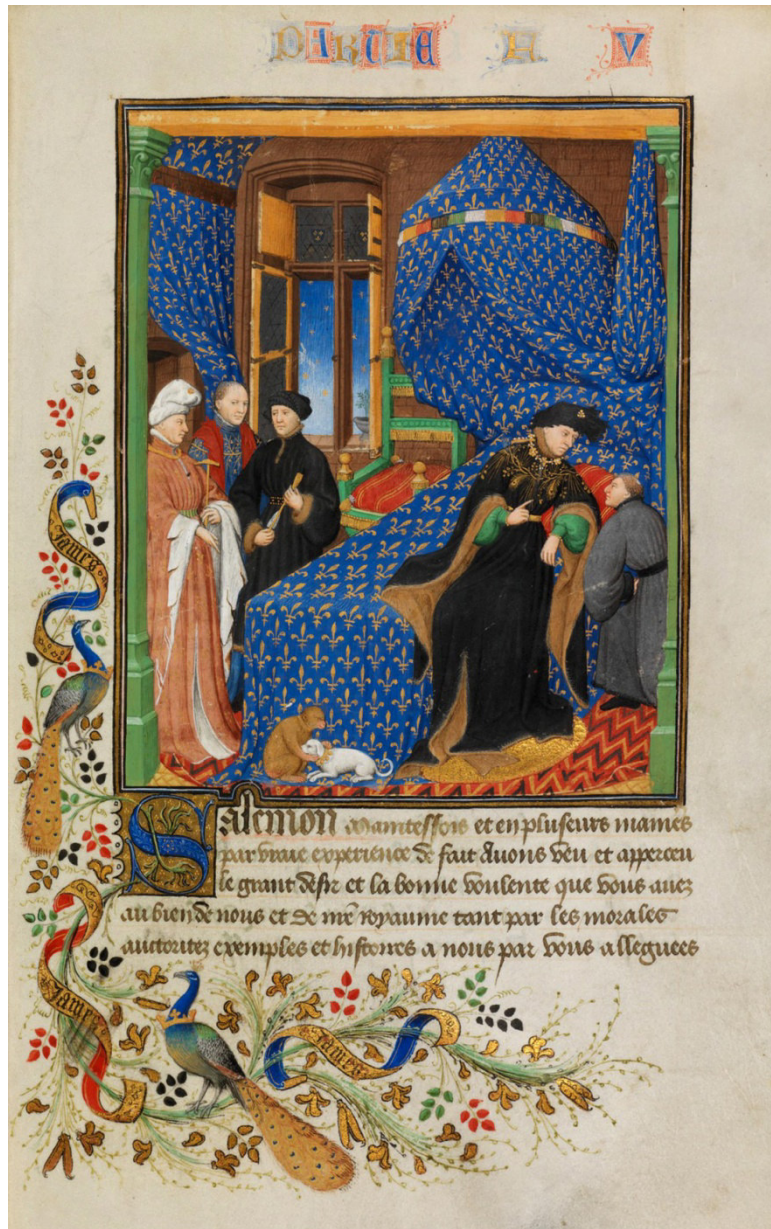 PARTIE
V
Jamez
Salemon Maintesfois et en pluseurs manieres
par vraie experience de fait Avons veu et apperceu
le grant desir et la bonne voulente que vous avez
au bien de nous et de nre royaume tant par les morales
auctoritez exemples et histoires a nous par vous alleguees
James
Jamez